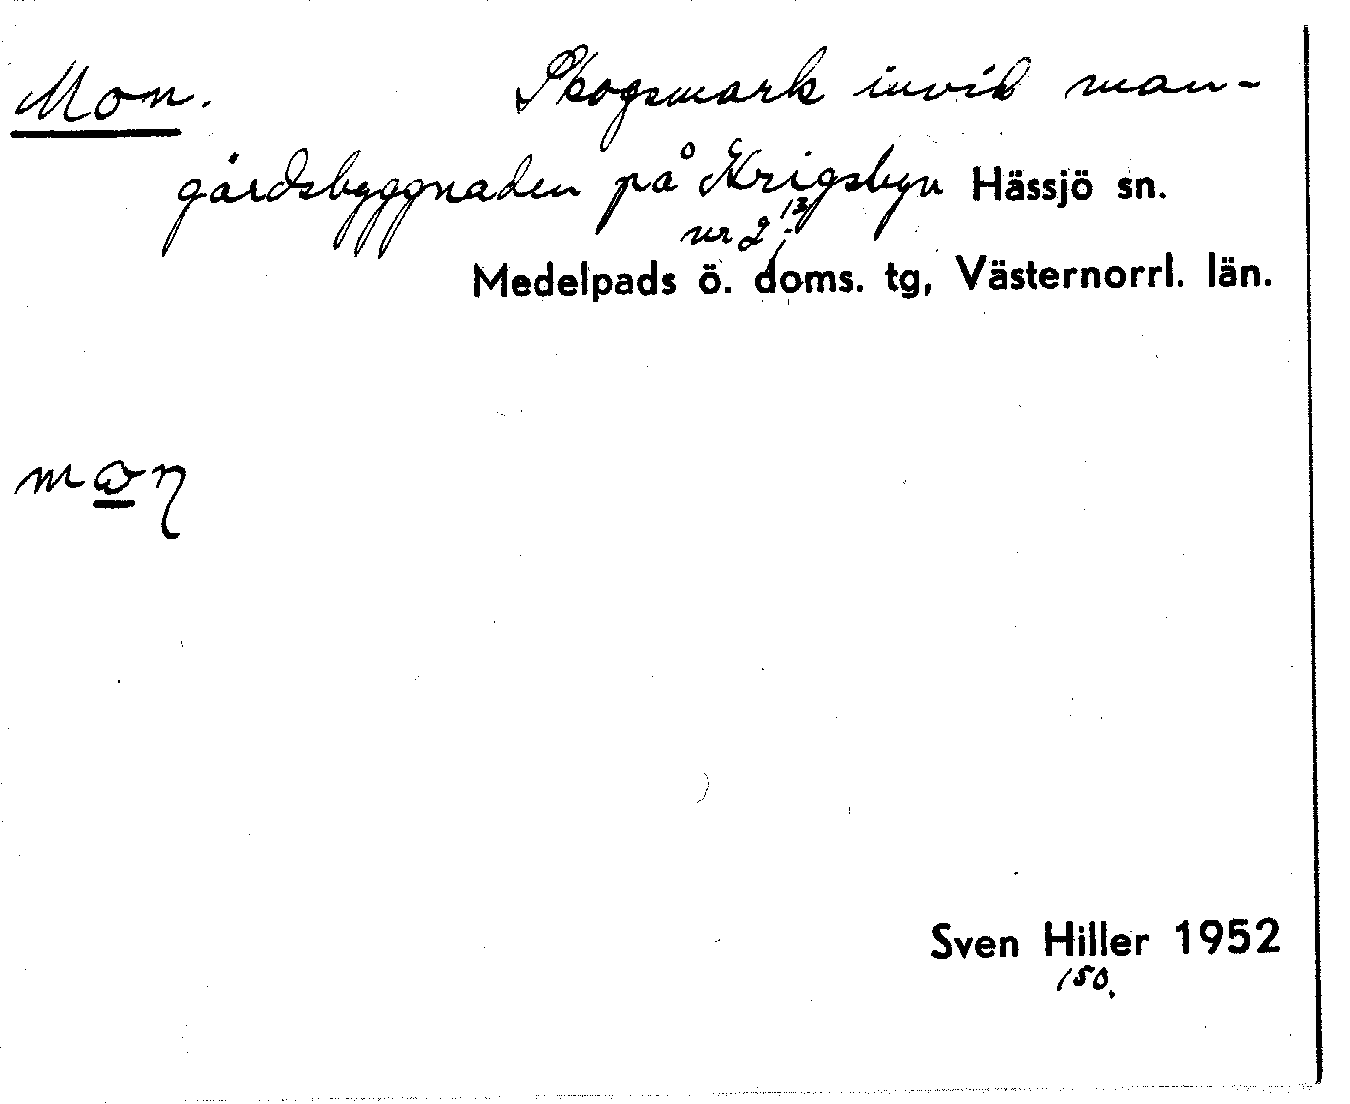 Mon. Skogsmark invid man-
gårdsbyggnaden på Krigsbyn Hässjö sn.
nr 2:13
Medelpads ö. doms. tg, Västernorrl. län.
Sven Hiller 1952
150.